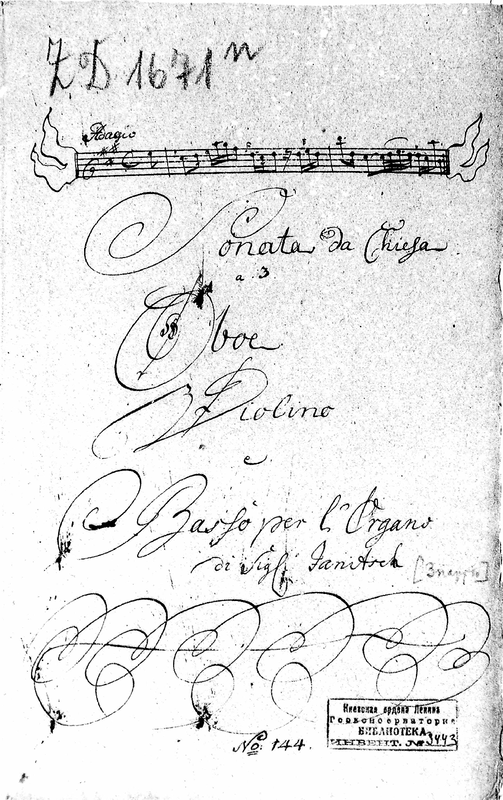 ZD 1671n
Adagio
Sonata da Chiesa
a 3
Oboe
Violino
e
Basso per l'Organo
di Sigl: Janitsch
No: 144.
Киевская ордена Ленина
Госконсерватория
БИБЛИОТЕКА
ИНВЕНТ. № 3443